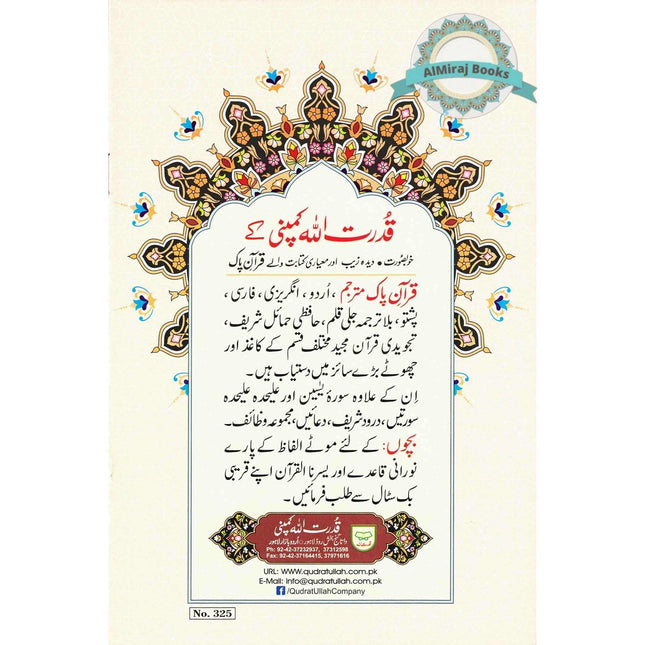 AlMiraj Books
قُدرت اللہ کمپنی کے
خوبصورت • دیدہ زیب اور معیاری کتابت والے قرآن پاک
قرآن پاک مترجم ، اُردو ، انگریزی ، فارسی ،
پشتو ، بلا ترجمہ جلی قلم ، حافظی حمائل شریف ،
تجویدی قرآن مجید مختلف قسم کے کاغذ اور
چھوٹے بڑے سائز میں دستیاب ہیں ۔
اِن کے علاوہ سورۂ یٰسین اور علیحدہ علیحدہ
سورتیں ، درود شریف ، دعائیں ، مجموعہ وظائف ۔
بچوں: کے لئے موٹے الفاظ کے پارے
نورانی قاعدے اور یسرنا القرآن اپنے قریبی
بک سٹال سے طلب فرمائیں ۔
قدرت اللہ کمپنی
داتا گنج بخش روڈ لاہور ○ اُردو بازار لاہور
Ph: 92-42-37232937, 37312598
Fax: 92-42-37164415, 37971616
URL: www.qudratullah.com.pk
E-Mail: info@qudratullah.com.pk
/QudratUllahCompany
No. 325